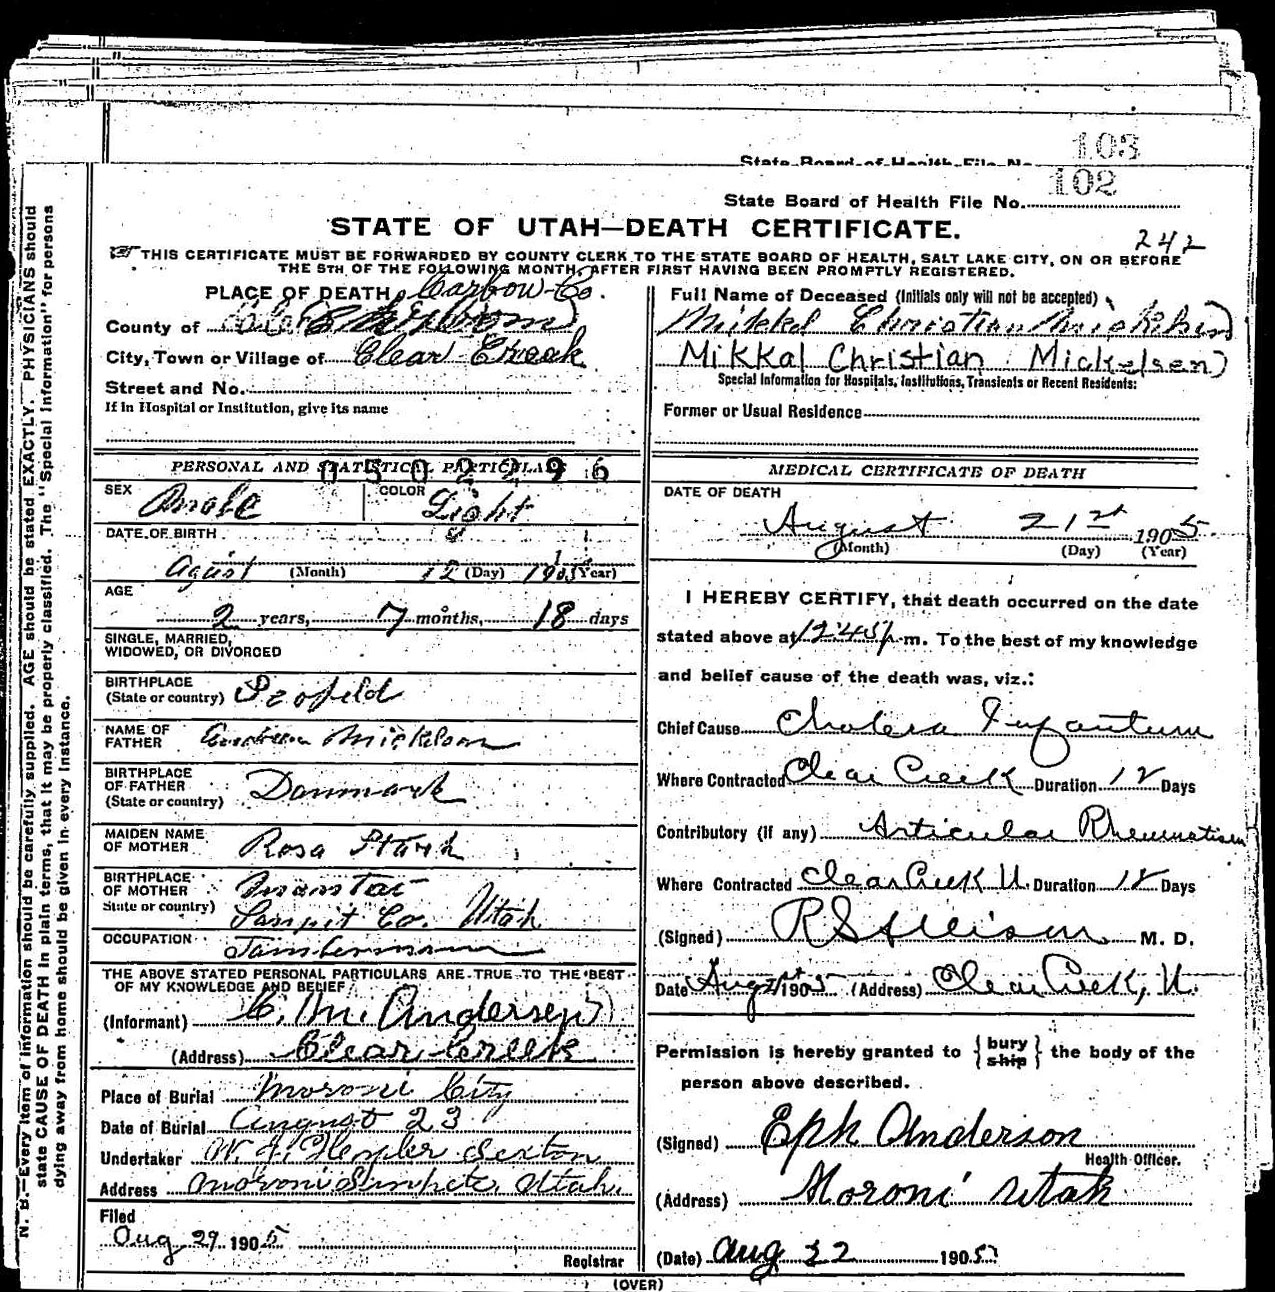 State Board of Health File No. 103
State Board of Health File No. 102
STATE OF UTAH—DEATH CERTIFICATE.
242
THIS CERTIFICATE MUST BE FORWARDED BY COUNTY CLERK TO THE STATE BOARD OF HEALTH, SALT LAKE CITY, ON OR BEFORE
THE 5TH OF THE FOLLOWING MONTH, AFTER FIRST HAVING BEEN PROMPTLY REGISTERED.
PLACE OF DEATH, Carbow Co.
County of
City, Town or Village of Clear Creak
Street and No.
If in Hospital or Institution, give its name
Full Name of Deceased (Initials only will not be accepted)
Mikkel Christian
Mikkal Christian Mickelsen)
Special Information for Hospitals, Institutions, Transients or Recent Residents:
Former or Usual Residence
PERSONAL AND STATISTICAL PARTICULARS
0502296
SEX Male COLOR Light
DATE OF BIRTH
Agust (Month) 12 (Day) 190 (Year)
AGE
2 years, 7 months, 18 days
SINGLE, MARRIED,
WIDOWED, OR DIVORCED
BIRTHPLACE
(State or country) Scofield
NAME OF
FATHER Mickelson
BIRTHPLACE
OF FATHER
(State or country) Danmark
MAIDEN NAME
OF MOTHER Rosa Stark
BIRTHPLACE
OF MOTHER
State or country)
Sanpit Co. Utah
OCCUPATION
THE ABOVE STATED PERSONAL PARTICULARS ARE TRUE TO THE BEST
OF MY KNOWLEDGE AND BELIEF
(Informant) C. M. Andersen
(Address) Clear Creek
Place of Burial Moroni City
Date of Burial August 23
Undertaker Sexton
Address Moroni Utah
Filed
Aug 29 1905
Registrar
MEDICAL CERTIFICATE OF DEATH
DATE OF DEATH
August 21st 1905
(Month) (Day) (Year)
I HEREBY CERTIFY, that death occurred on the date
stated above at 12 45 p.m. To the best of my knowledge
and belief cause of the death was, viz.:
Chief Cause Cholera Infantum
Where Contracted Clear Creek Duration 12 Days
Contributory (if any) Articular Rheumatism
Where Contracted Clear Creek U. Duration 12 Days
(Signed) R S Allison M. D.
Date Aug 21st 1905 (Address) Clear Creek, U.
Permission is hereby granted to { bury ship } the body of the
person above described.
(Signed) Eph Anderson
Health Officer.
(Address) Moroni Utah
(Date) Aug 22 1905
(OVER)
N. B.—Every item of information should be carefully supplied. AGE should be stated EXACTLY. PHYSICIANS should
state CAUSE OF DEATH in plain terms, that it may be properly classified. The "Special Information" for persons
dying away from home should be given in every instance.